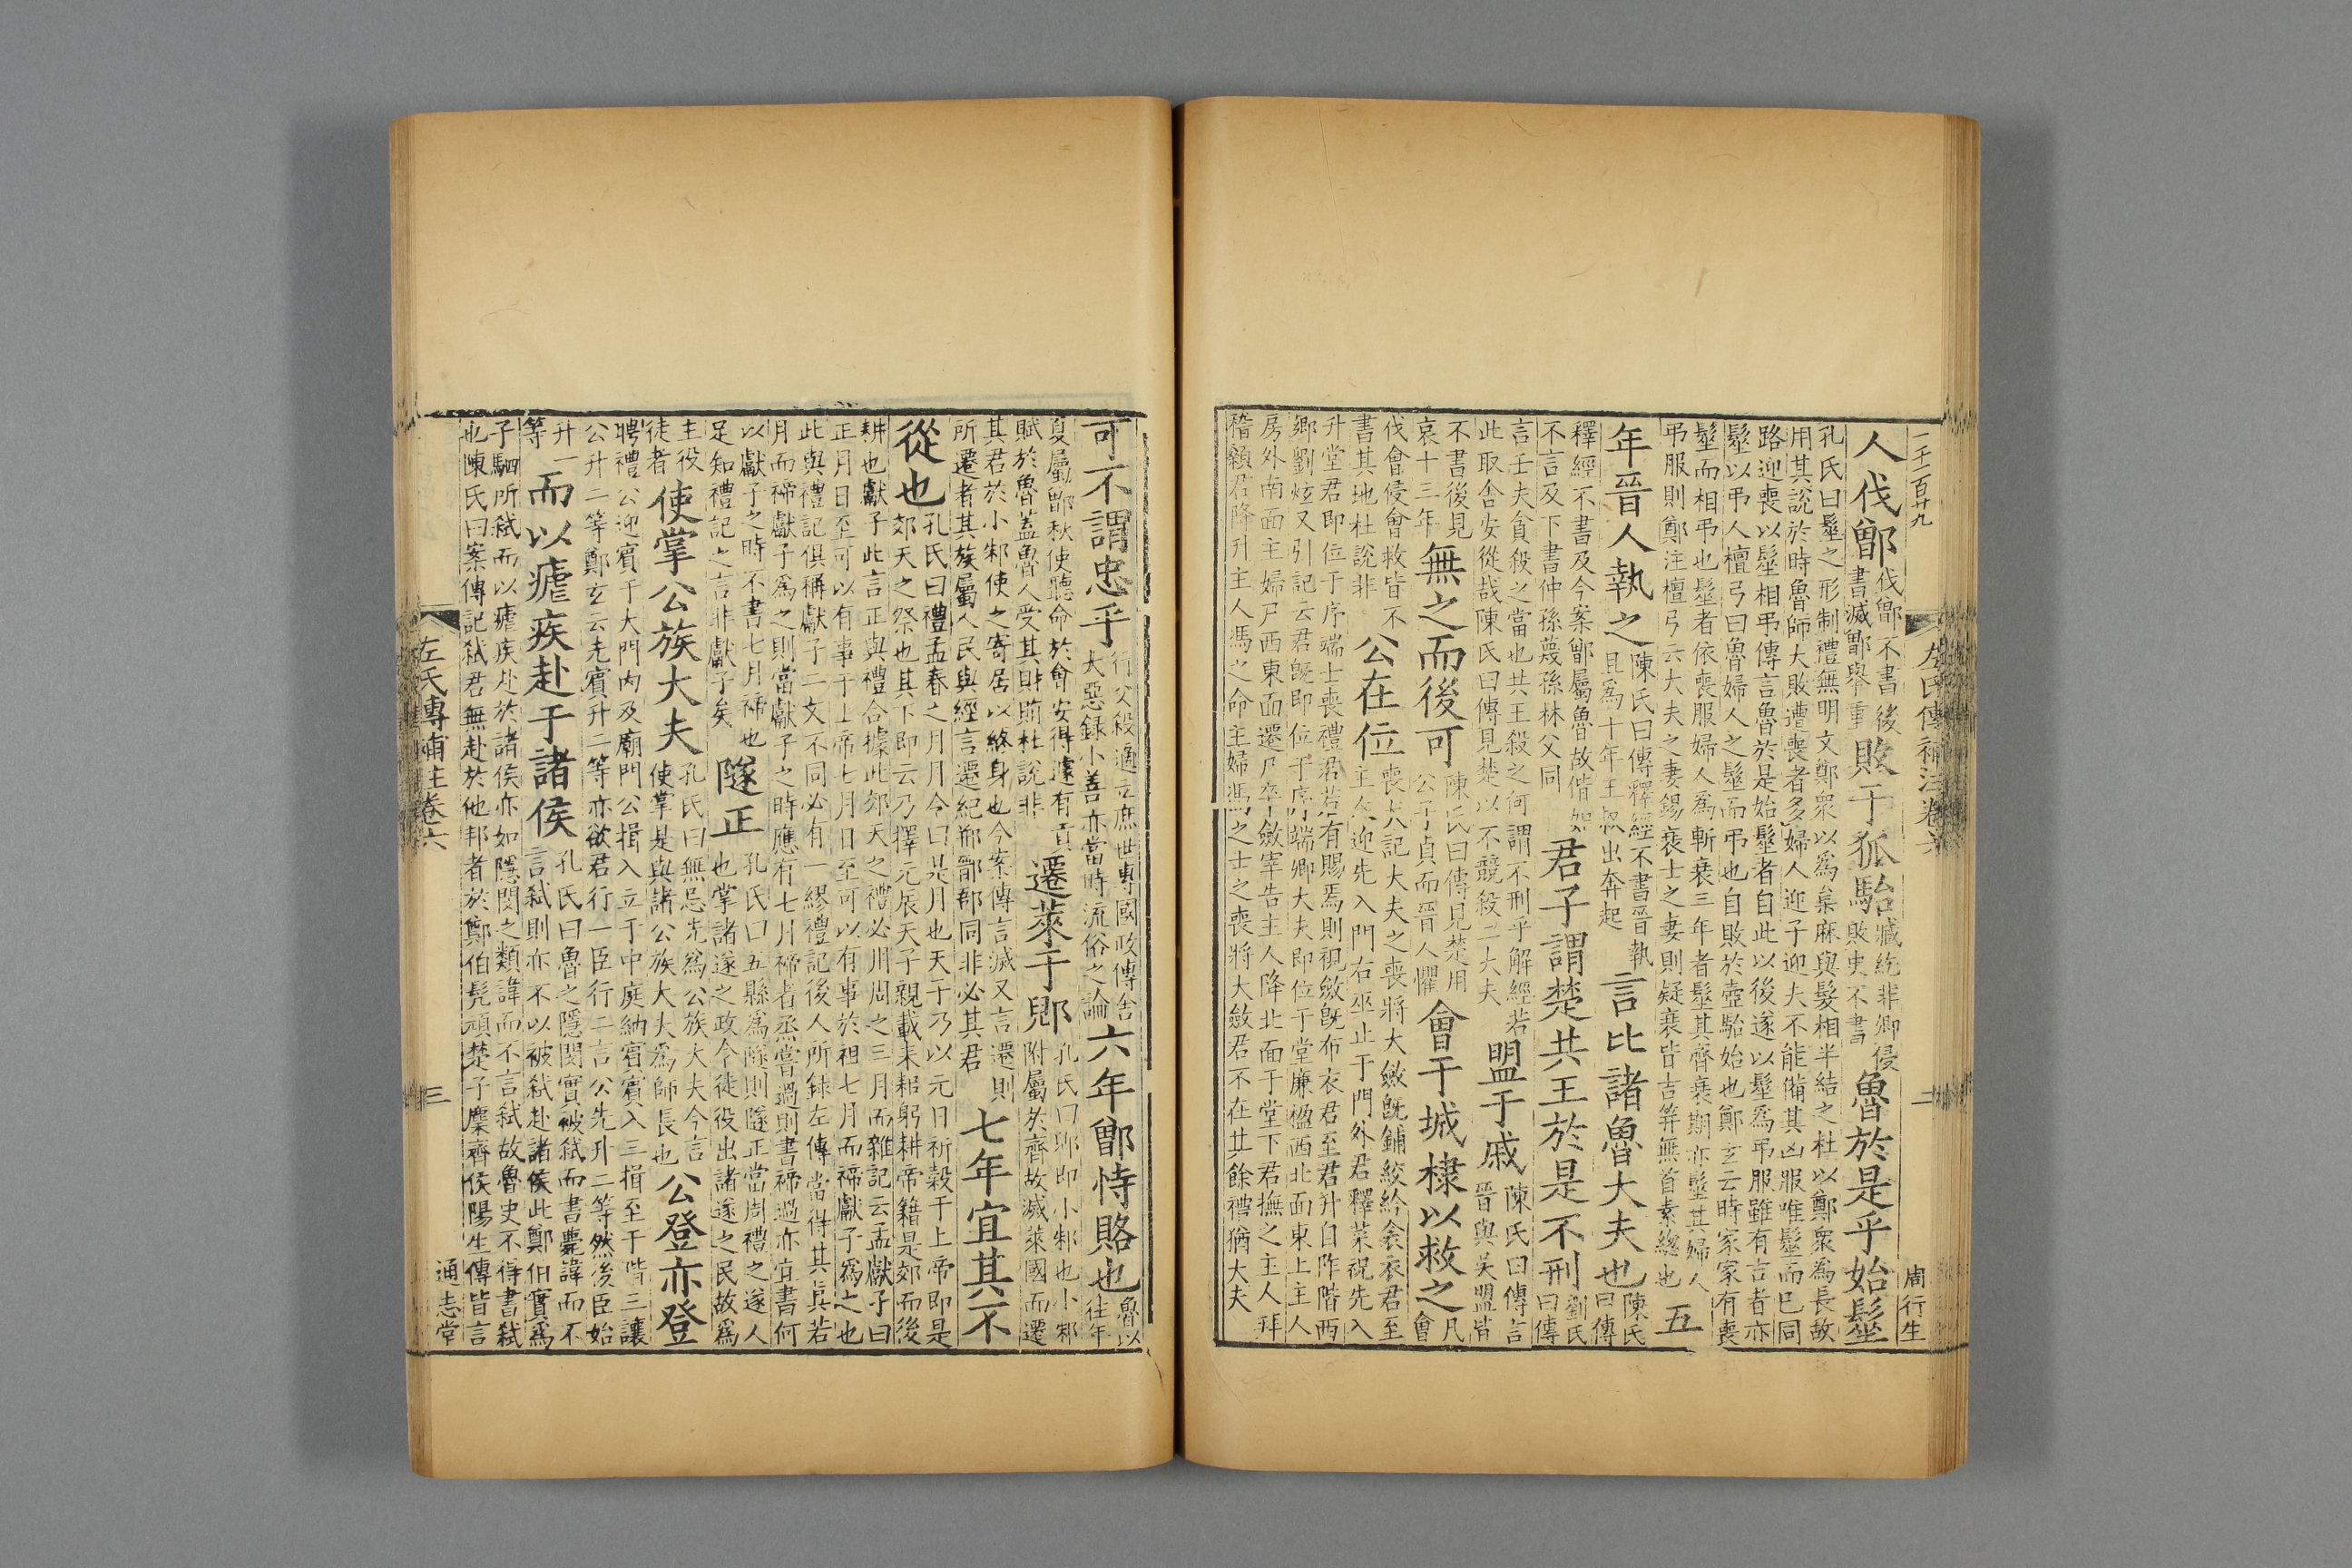 左氏傳補注卷六
二
周行生
人伐鄫伐鄫不書後書滅鄫舉重敗于狐駘臧紇非卿侵敗史不書魯於是乎始髽
孔氏曰髽之形制禮無明文鄭衆以爲枲麻與髮相半結之杜以鄭衆爲長故
用其說於時魯師大敗遭喪者多婦人迎子迎夫不能備其凶服唯髽而已同
路迎喪以髽相弔傳言魯於是始髽者自此以後遂以髽爲弔服雖有吉者亦
髽以弔人檀弓曰魯婦人之髽而弔也自敗於壺駘始也鄭玄云時家家有喪
髽而相弔也髽者依喪服婦人爲斬衰三年者髽其齊衰期亦髽其婦人
弔服則鄭注檀弓云大夫之妻錫衰士之妻則疑衰皆吉笄無首素緫也五
年晉人執之陳氏曰傳釋經不書晉執且爲十年王叔出奔起言比諸魯大夫也陳氏曰傳
釋經不書及今案鄫屬魯故偕如
不言及下書仲孫蔑孫林父同君子謂楚共王於是不刑劉氏曰傳
言壬夫貪殺之當也共王殺之何謂不刑乎解經若
此取舍安從哉陳氏曰傳見楚以不競殺二大夫盟于戚陳氏曰傳言晉與吴盟皆
不書後見
哀十三年無之而後可陳氏曰傳見楚用公子貞而晉人懼會于城棣以救之凡會
伐會侵會救皆不
書其地杜說非公在位喪大記大夫之喪將大斂既鋪絞紟衾衣君至主人迎先入門右巫止于門外君釋菜祝先入
升堂君即位于序端士喪禮君若有賜焉則視斂既布衣君至君升自阼階西
鄉劉炫又引記云君既即位于序端卿大夫即位于堂廉楹西北面東上主人
房外南面主婦尸西東面遷尸卒斂宰告主人降北面于堂下君撫之主人拜
稽顙君降升主人馮之命主婦馮之士之喪將大斂君不在其餘禮猶大夫
可不謂忠乎行父殺適立庶世專國政傳舍大惡錄小善亦當時流俗之論六年鄫恃賂也魯以往年
夏屬鄫秋使聽命於會安得遽有貢
賦於魯蓋魯人受其財賄杜說非遷萊于郳孔氏曰郳即小邾也小邾附屬於齊故滅萊國而遷
其君於小邾使之寄居以終身也今案傳言滅又言遷則
所遷者其族屬人民與經言遷紀郱鄑郚同非必其君七年宜其不
從也孔氏曰禮孟春之月月令曰是月也天子乃以元日祈穀于上帝即是郊天之祭也其下即云乃擇元辰天子親載耒耜躬耕帝籍是郊而後
耕也獻子此言正與禮合據此郊天之禮必用周之三月而雜記云孟獻子曰
正月日至可以有事于上帝七月日至可以有事於祖七月而禘獻子爲之也
此與禮記俱稱獻子二文不同必有一繆禮記後人所録左傳當得其眞若
月而禘獻子爲之則當獻子之時應有七月禘者烝嘗過則書禘過亦宜書何
以獻子之時不書七月禘也
足知禮記之言非獻子矣隧正孔氏曰五縣爲隧則隧正當周禮之遂人也掌諸遂之政令徒役出諸遂之民故爲
主役
徒者使掌公族大夫孔氏曰無忌先爲公族大夫今言使掌是與諸公族大夫爲師長也公登亦登
聘禮公迎賓于大門内及廟門公揖入立于中庭納賓賓入三揖至于階三讓
公升二等鄭玄云先賓升二等亦欲君行一臣行二言公先升二等然後臣始
升一
等而以瘧疾赴于諸侯孔氏曰魯之隱閔實被弑而書薨諱而不言弑則亦不以被弑赴諸侯此鄭伯實爲
子駟所弑而以瘧疾赴於諸侯亦如隱閔之類諱而不言弑故魯史不得書弑
也陳氏曰案傳記弑君無赴於他邦者於鄭伯髡頑楚子麇齊侯陽生傳皆言
左氏傳補注卷六
三
通志堂